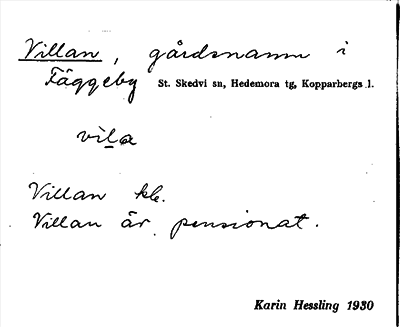 Villan, gårdsnamn i
Fäggeby St. Skedvi sn, Hedemora tg, Kopparbergs l.
vila
Villan kh.
Villan är pensionat.
Karin Hessling 1930